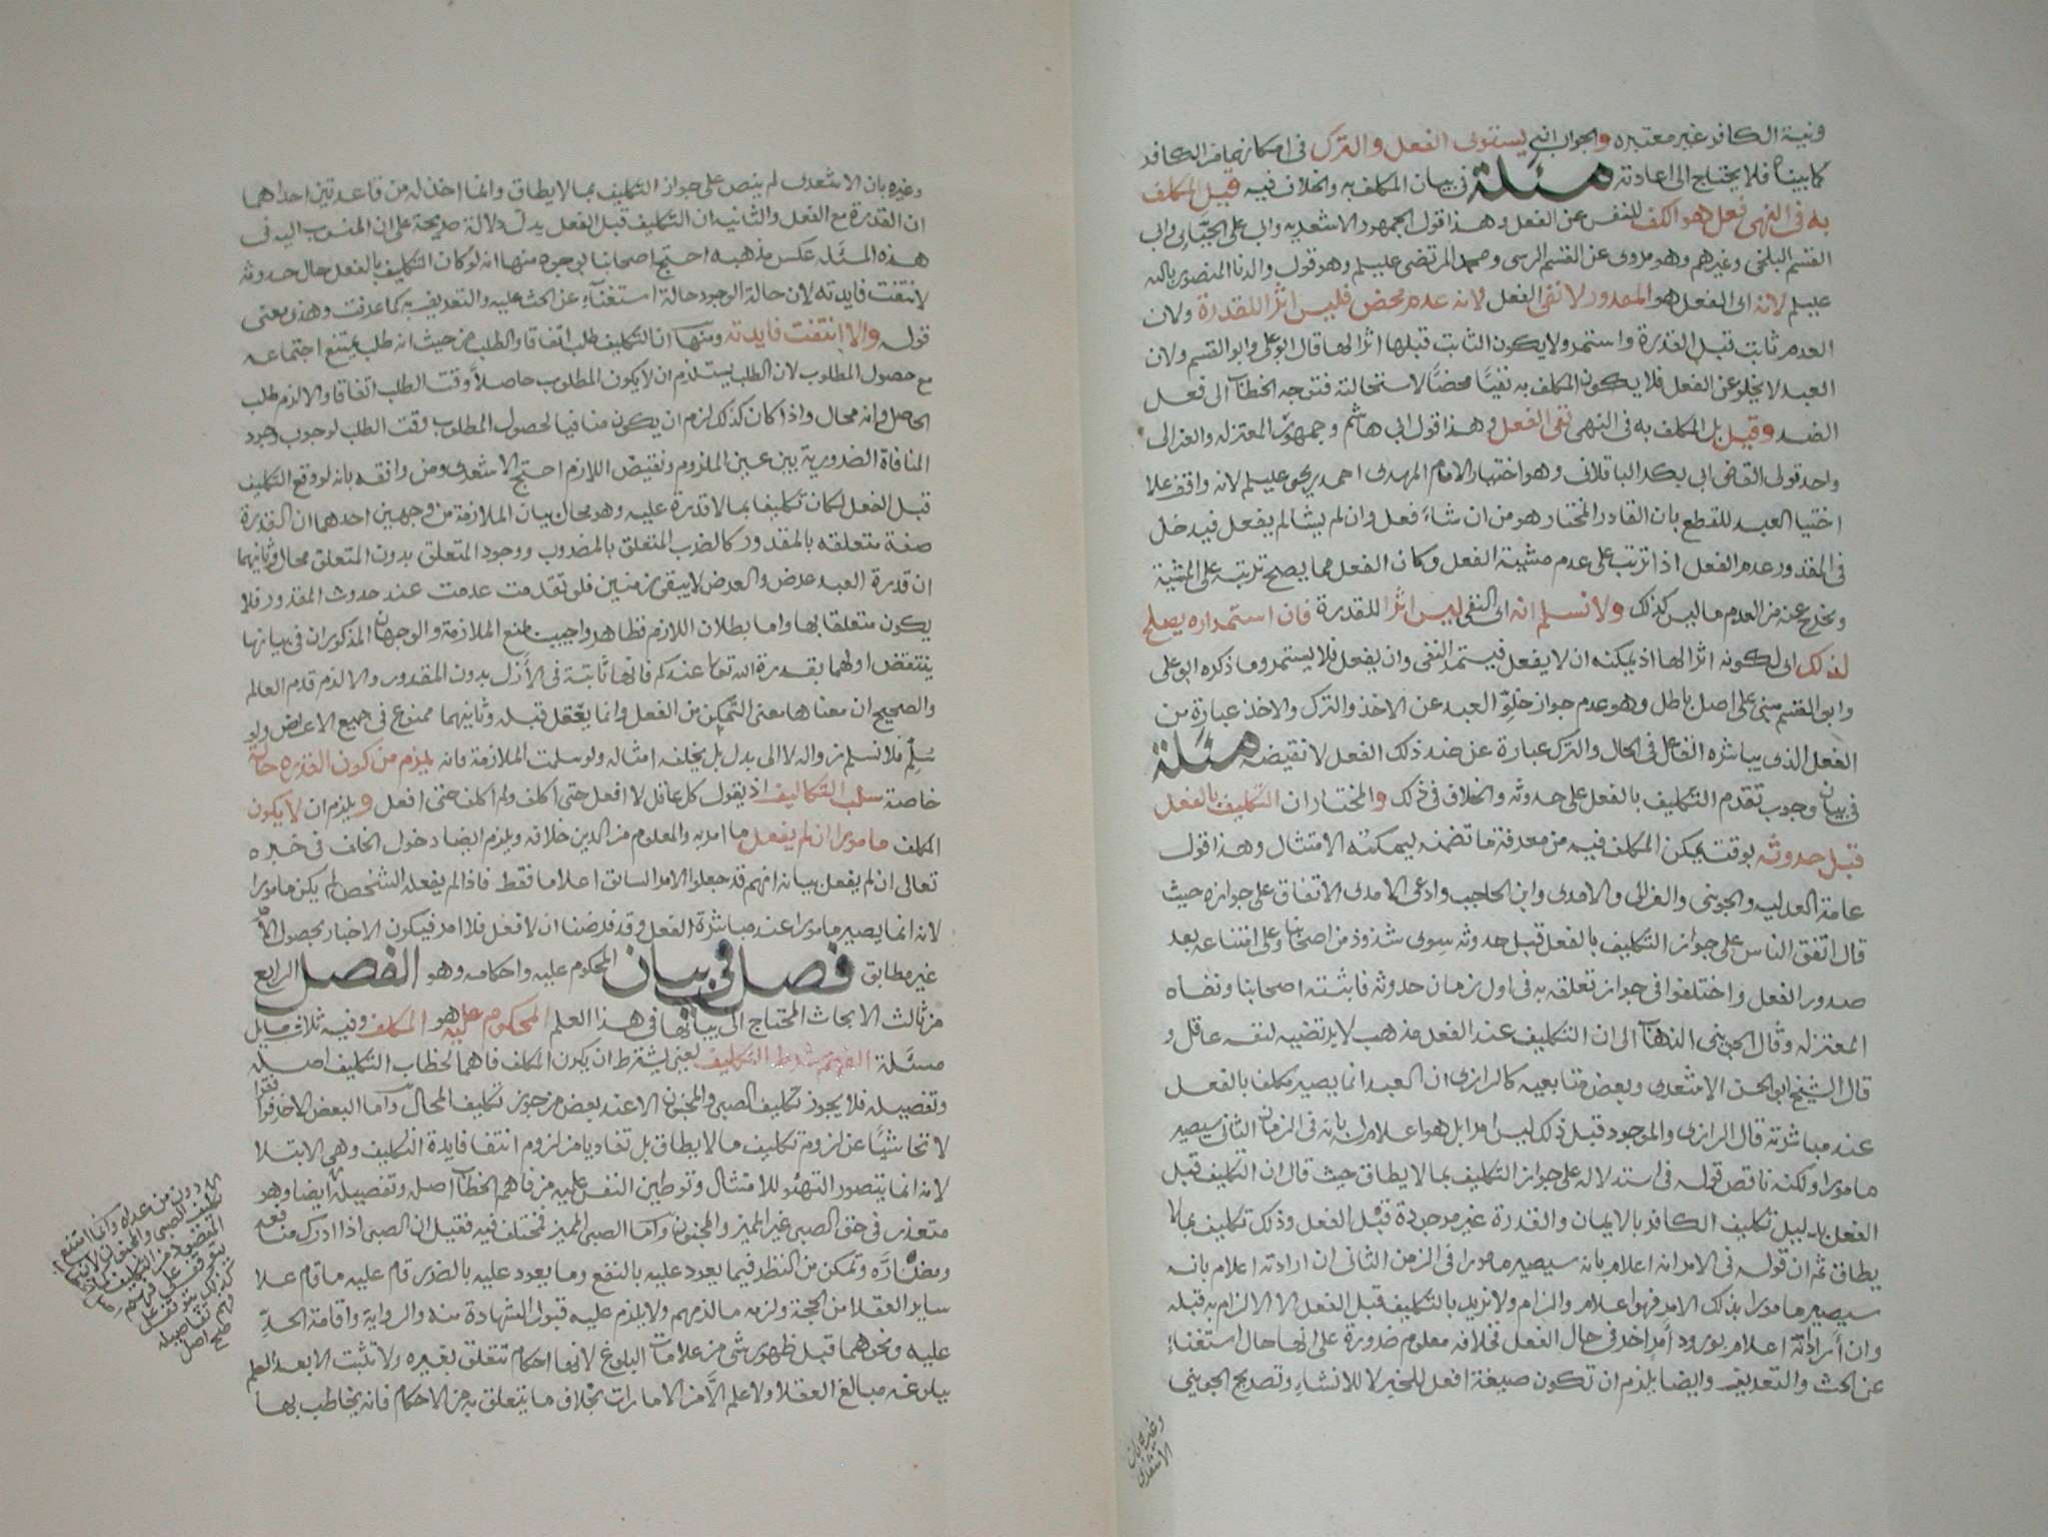 ونية الكافر غير معتبره والجواب انه يستوى الفعل والترك فى امكانهما من الكافر
كما بيناه فلا يحتاج الى اعادته مسئلة فى بيان المكلف به والخلاف فيه قيل المكلف
به فى النهى فعل هو الكف للنفس عن الفعل وهذا قول الجمهور الاشعريه وابى على الجبائى وابى
القسم البلخى وغيرهم وهو مروى عن القسم الرسى ومحمد المرتضى عليلم وهو قول والدنا المنصور بالله
عليلم لانه اى الفعل هو المقدور لا نفى الفعل لانه عدم محض فليس اثرا للقدرة ولان
العدم ثابت قبل القدرة واستمر ولا يكون الثابت قبلها اثرا لها قال ابو على وابو القسم ولان
العبد لا يخلو عن الفعل فلا يكون المكلف به نفيًا محضًا لاستحالته فتوجه الخطاب الى فعل
الضد وقيل بل المكلف به فى النهى نفى الفعل وهذا قول ابى هاشم وجمهور المعتزله والغزالى
واحد قولى القاضى ابى بكر الباقلانى وهو اختيار الامام المهدى احمد بن يحيى عليلم لانه واقف علا
اختيا العبد للقطع بان القادر المختار هو من ان شاء فعل وان لم يشا لم يفعل فيدخل
فى المقدور عدم الفعل اذا ترتب على عدم مشيئة الفعل وكان الفعل مما يصح ترتبه على المشية
ويخرج عنه من العدم ما ليس كذلك ولا نسلم انه اى النفى ليس اثرا للقدرة فان استمراره يصلح
لذلك اى لكونه اثرا لها اذ يمكنه ان لا يفعل فيستمر النفى وان يفعل فلا يستمر وما ذكره ابو على
وابو القسم مبنى على اصل باطل وهو عدم جواز خلو العبد عن الاخذ والترك والاخذ عبارة من
الفعل الذى يباشره الفاعل فى الحال والترك عبارة عن ضد ذلك الفعل لا نقيضه مسئلة
فى بيان وجوب تقدم التكليف بالفعل على حدوثه والخلاف فى ذلك والمختار ان التكليف بالفعل
قبل حدوثه بوقت يمكن المكلف فيه من معرفة ما تضمنه ليمكنه الامتثال وهذا قول
عامة العدليه والجوينى والغزالى والامدى وابن الحاجب وادعى الامدى الاتفاق على جوازه حيث
قال اتفق الناس على جواز التكليف بالفعل قبل حدوثه سوى شذوذ من اصحابنا وعلى امتناعه بعد
صدور الفعل واختلفوا فى جواز تعلقه به فى اول زمان حدوثه فاثبته اصحابنا ونفاه
المعتزله وقال الجوينى الذهاب الى ان التكليف عند الفعل مذهب لا يرتضيه لنفسه عاقل و
قال الشيخ ابو الحسن الاشعرى وبعض متابعيه كالرازى ان العبد انما يصير مكلفا بالفعل
عند مباشرته قال الرازى والموجود قبل ذلك ليس امرا بل هو اعلام له بانه فى الزمان الثانى سيصير
مامورا ولكنه ناقض قوله فى استدلاله على جواز التكليف بما لا يطاق حيث قال ان التكليف قبل
الفعل بدليل تكليف الكافر بالايمان والقدرة غير موجودة قبل الفعل وذلك تكليف بما لا
يطاق ثم ان قوله فى الامر انه اعلام بانه سيصير مامورا فى الزمن الثانى ان ارادته اعلام بانه
سيصير مامورا بذلك الامر فهو اعلام والزام ولا نريد بالتكليف قبل الفعل الا الالزام به قبله
وان أرادته اعلام بورود أمر اخر فى حال الفعل فخلافه معلوم ضرورة على انها حال استغناء
عن الحث والتعريف وايضا يلزم ان تكون صيغة افعل للخبر لا للانشاء وتصريح الجوينى
وغيره بان
الاشعرى
وغيره بان الاشعرى لم ينص على جواز التكليف بما لا يطاق وانما اخذ له من قاعدتين احداهما
ان القدرة مع الفعل والثانيه ان التكليف قبل الفعل يدل دلالة صريحة على ان المنسوب اليه فى
هذه المسئله عكس مذهبه احتج اصحابنا بوجوه منها انه لو كان التكليف بالفعل حال حدوثه
لانتفت فايدته لان حالة الوجود حالة استغناء عن الحث عليه والتعريف به كما عرفت وهذى معنى
قوله والا انتفت فايدته ومنها ان التكليف طلب اتفاقا والطلب من حيث انه طلب يمتنع اجتماعه
مع حصول المطلوب لان الطلب يستلزم ان لا يكون المطلوب حاصلاً وقت الطلب اتفاقا والا لزم طلب
الحاصل وانه محال واذا كان كذلك لزم ان يكون منافيا لحصول المطلوب وقت الطلب لوجوب وجود
المنافاة الضرورية بين عين الملزوم ونقيض اللازم احتج الاشعرى ومن وافقه بانه لو وقع التكليف
قبل الفعل لكان تكليفا بما لا قدرة عليه وهو محال بيان الملازمة من وجهين احدهما ان القدرة
صفة متعلقه بالمقدور كالضرب المتعلق بالمضروب ووجود المتعلق بدون المتعلق محال وثانيهما
ان قدرة العبد عرض والعرض لا يبقى زمنين فلو تقدمت عدمت عند حدوث المقدور فلا
يكون متعلقا بها واما بطلان اللازم فظاهر واجيب بمنع الملازمة والوجهان المذكوران فى بيانها
ينتقض اولهما بقدرة الله تعالى عندكم فانها ثابتة فى الأزل بدون المقدور والا لزم قدم العالم
والصحيح ان معناها معنى التمكن من الفعل وانما يعقل قبله وثانيهما ممنوع فى جميع الاعراض ولو
سُلِّم فلا نسلم زواله لا الى بدل بل يخلفه امثاله ولو سلمت الملازمة فانه يلزم من كون القدره حالة
خاصة سلب التكاليف اذ يقول كل عاقل لا افعل حتى أكلف ولم أكلف حتى افعل ويلزم ان لا يكون
المكلف مامورا ان لم يفعل ما امر به والمعلوم من الدين خلافه ويلزم ايضا دخول الخلف فى خبره
تعالى ان لم يفعل بيانه انهم قد جعلوا الامر السابق اعلاما فقط فاذا لم يفعله الشخص لم يكن مامورا
لانه انما يصير مامورا عند مباشرة الفعل وقد فرضنا ان لا فعل فلا امر فيكون الاخبار بحصول الامر
غير مطابق فصل فى بيان المحكوم عليه واحكامه وهو الفصل الرابع
من ثالث الابحاث المحتاج الى بيانها فى هذا العلم المحكوم عليه هو المكلف وفيه ثلاث مسايل
مسئلة الفهم شرط التكليف يعنى يشترط ان يكون المكلف فاهما لخطاب التكليف اصله
وتفصيله فلا يجوز تكليف الصبى والمجنون الا عند بعض من جوز تكليف المحال واما البعض الاخر
لا تحاشيًا عن لزومه تكليف ما لا يطاق بل تفاديا من لزوم انتفا فايدة التكليف وهى الابتلا
لانه انما يتصور التهيؤ للامتثال وتوطين النفس عليه من فاهم الخطاب اصله وتفصيله ايضا وهو
متعذر فى حق الصبى غير المميز والمجنون واما الصبى المميز فمختلف فيه فقيل ان الصبى اذا ادرك منافعه
ومضارَّه وتمكن من النظر فيما يعود عليه بالنفع وما يعود عليه بالضرر قام عليه ما قام علا
ساير العقلا من الحجة ولزمه ما لزمهم ولا يلزم عليه قبول الشهادة منه والرواية واقامة الحدِّ
عليه ونحوهما قبل ظهور شى من علامات البلوغ لانها احكام تتعلق بغيره ولا تثبت الا بعد العلم
ببلوغه مبالغ العقلا ولا علم الَّا من الامارات بخلاف ما يتعلق به من الاحكام فانه يخاطب بها